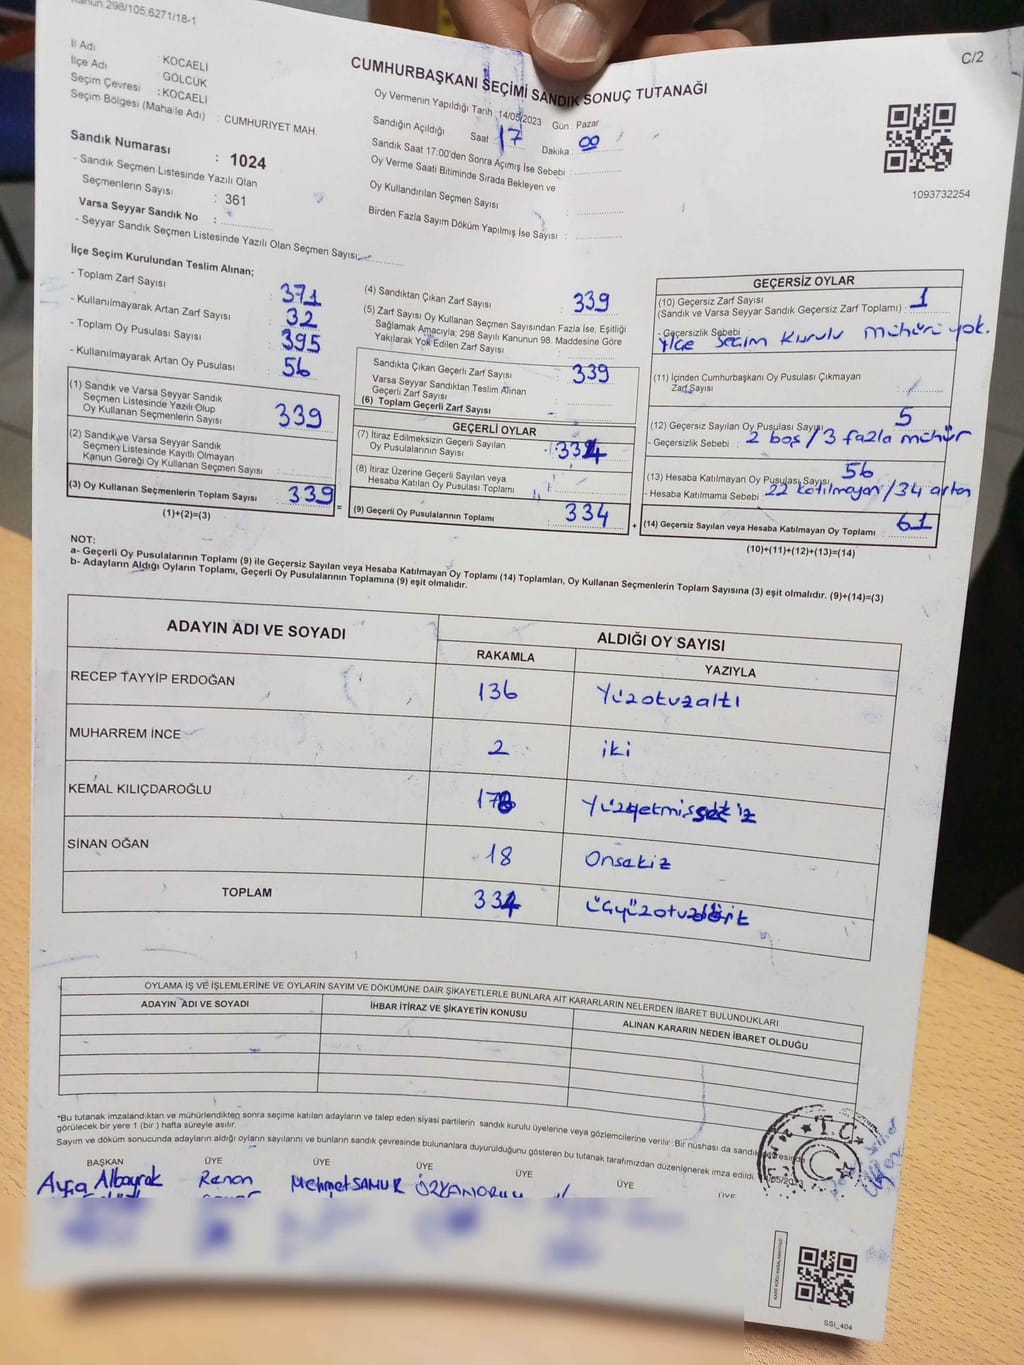 Kanun:298/105,6271/18-1
C/2
İl Adı : KOCAELİ
İlçe Adı GÖLCÜK
Seçim Çevresi : KOCAELİ
Seçim Bölgesi (Mahalle Adı) : CUMHURİYET MAH.
Sandık Numarası : 1024
- Sandık Seçmen Listesinde Yazılı Olan
Seçmenlerin Sayısı : 361
Varsa Seyyar Sandık No :
- Seyyar Sandık Seçmen Listesinde Yazılı Olan Seçmen Sayısı
CUMHURBAŞKANI SEÇİMİ SANDIK SONUÇ TUTANAĞI
Oy Vermenin Yapıldığı Tarih :14/05/2023 Gün : Pazar
Sandığın Açıldığı Saat 17 Dakika : 00
Sandık Saat 17:00'den Sonra Açımış İse Sebebi :
Oy Verme Saati Bitiminde Sırada Bekleyen ve
Oy Kullandırılan Seçmen Sayısı :
Birden Fazla Sayım Döküm Yapılmış İse Sayısı :
1093732254
İlçe Seçim Kurulundan Teslim Alınan;
- Toplam Zarf Sayısı : 371
- Kullanılmayarak Artan Zarf Sayısı : 32
- Toplam Oy Pusulası Sayısı : 395
- Kullanılmayarak Artan Oy Pusulası : 56
(1) Sandık ve Varsa Seyyar Sandık
Seçmen Listesinde Yazılı Olup
Oy Kullanan Seçmenlerin Sayısı : 339
(2) Sandık ve Varsa Seyyar Sandık
Seçmen Listesinde Kayıtlı Olmayan
Kanun Gereği Oy Kullanan Seçmen Sayısı
(3) Oy Kullanan Seçmenlerin Toplam Sayısı : 339
(1)+(2)=(3)
(4) Sandıktan Çıkan Zarf Sayısı : 339
(5) Zarf Sayısı Oy Kullanan Seçmen Sayısından Fazla İse, Eşitliği
Sağlamak Amacıyla; 298 Sayılı Kanunun 98. Maddesine Göre
Yakılarak Yok Edilen Zarf Sayısı :
Sandıkta Çıkan Geçerli Zarf Sayısı : 339
Varsa Seyyar Sandıktan Teslim Alınan
Geçerli Zarf Sayısı
(6) Toplam Geçerli Zarf Sayısı
GEÇERLİ OYLAR
(7) İtiraz Edilmeksizin Geçerli Sayılan
Oy Pusulalarının Sayısı : 334
(8) İtiraz Üzerine Geçerli Sayılan veya
Hesaba Katılan Oy Pusulası Toplamı
(9) Geçerli Oy Pusulalarının Toplamı : 334
GEÇERSİZ OYLAR
(10) Geçersiz Zarf Sayısı
(Sandık ve Varsa Seyyar Sandık Geçersiz Zarf Toplamı) : 1
- Geçersizlik Sebebi
ilçe Seçim Kurulu mühürü yok.
(11) İçinden Cumhurbaşkanı Oy Pusulası Çıkmayan
Zarf Sayısı :
(12) Geçersiz Sayılan Oy Pusulası Sayısı 5
- Geçersizlik Sebebi : 2 boş / 3 fazla mühür
(13) Hesaba Katılmayan Oy Pusulası Sayısı 56
- Hesaba Katılmama Sebebi : 22 katılmayan / 34 artan
(14) Geçersiz Sayılan veya Hesaba Katılmayan Oy Toplamı : 61
(10)+(11)+(12)+(13)=(14)
NOT:
a- Geçerli Oy Pusulalarının Toplamı (9) ile Geçersiz Sayılan veya Hesaba Katılmayan Oy Toplamı (14) Toplamları, Oy Kullanan Seçmenlerin Toplam Sayısına (3) eşit olmalıdır. (9)+(14)=(3)
b- Adayların Aldığı Oyların Toplamı, Geçerli Oy Pusulalarının Toplamına (9) eşit olmalıdır.
ADAYIN ADI VE SOYADI
ALDIĞI OY SAYISI
RAKAMLA YAZIYLA
RECEP TAYYİP ERDOĞAN 136 Yüzotuzaltı
MUHARREM İNCE 2 iki
KEMAL KILIÇDAROĞLU 178 Yüzyetmişsekiz
SİNAN OĞAN 18 Onsekiz
TOPLAM 334 üçyüzotuzdört
OYLAMA İŞ VE İŞLEMLERİNE VE OYLARIN SAYIM VE DÖKÜMÜNE DAİR ŞİKAYETLERLE BUNLARA AİT KARARLARIN NELERDEN İBARET BULUNDUKLARI
ADAYIN ADI VE SOYADI İHBAR İTİRAZ VE ŞİKAYETİN KONUSU ALINAN KARARIN NEDEN İBARET OLDUĞU
*Bu tutanak imzalandıktan ve mühürlendikten sonra seçime katılan adayların ve talep eden siyasi partilerin sandık kurulu üyelerine veya gözlemcilerine verilir. Bir nüshası da sandık çevresinde
görülecek bir yere 1 (bir ) hafta süreyle asılır.
Sayım ve döküm sonucunda adayların aldığı oyların sayılarını ve bunların sandık çevresinde bulunanlara duyurulduğunu gösteren bu tutanak tarafımızdan düzenlenerek imza edildi.
BAŞKAN ÜYE ÜYE ÜYE ÜYE ÜYE ÜYE
Ayça Albayrak Renan Mehmet SAMUR
T.C.
SSI_404